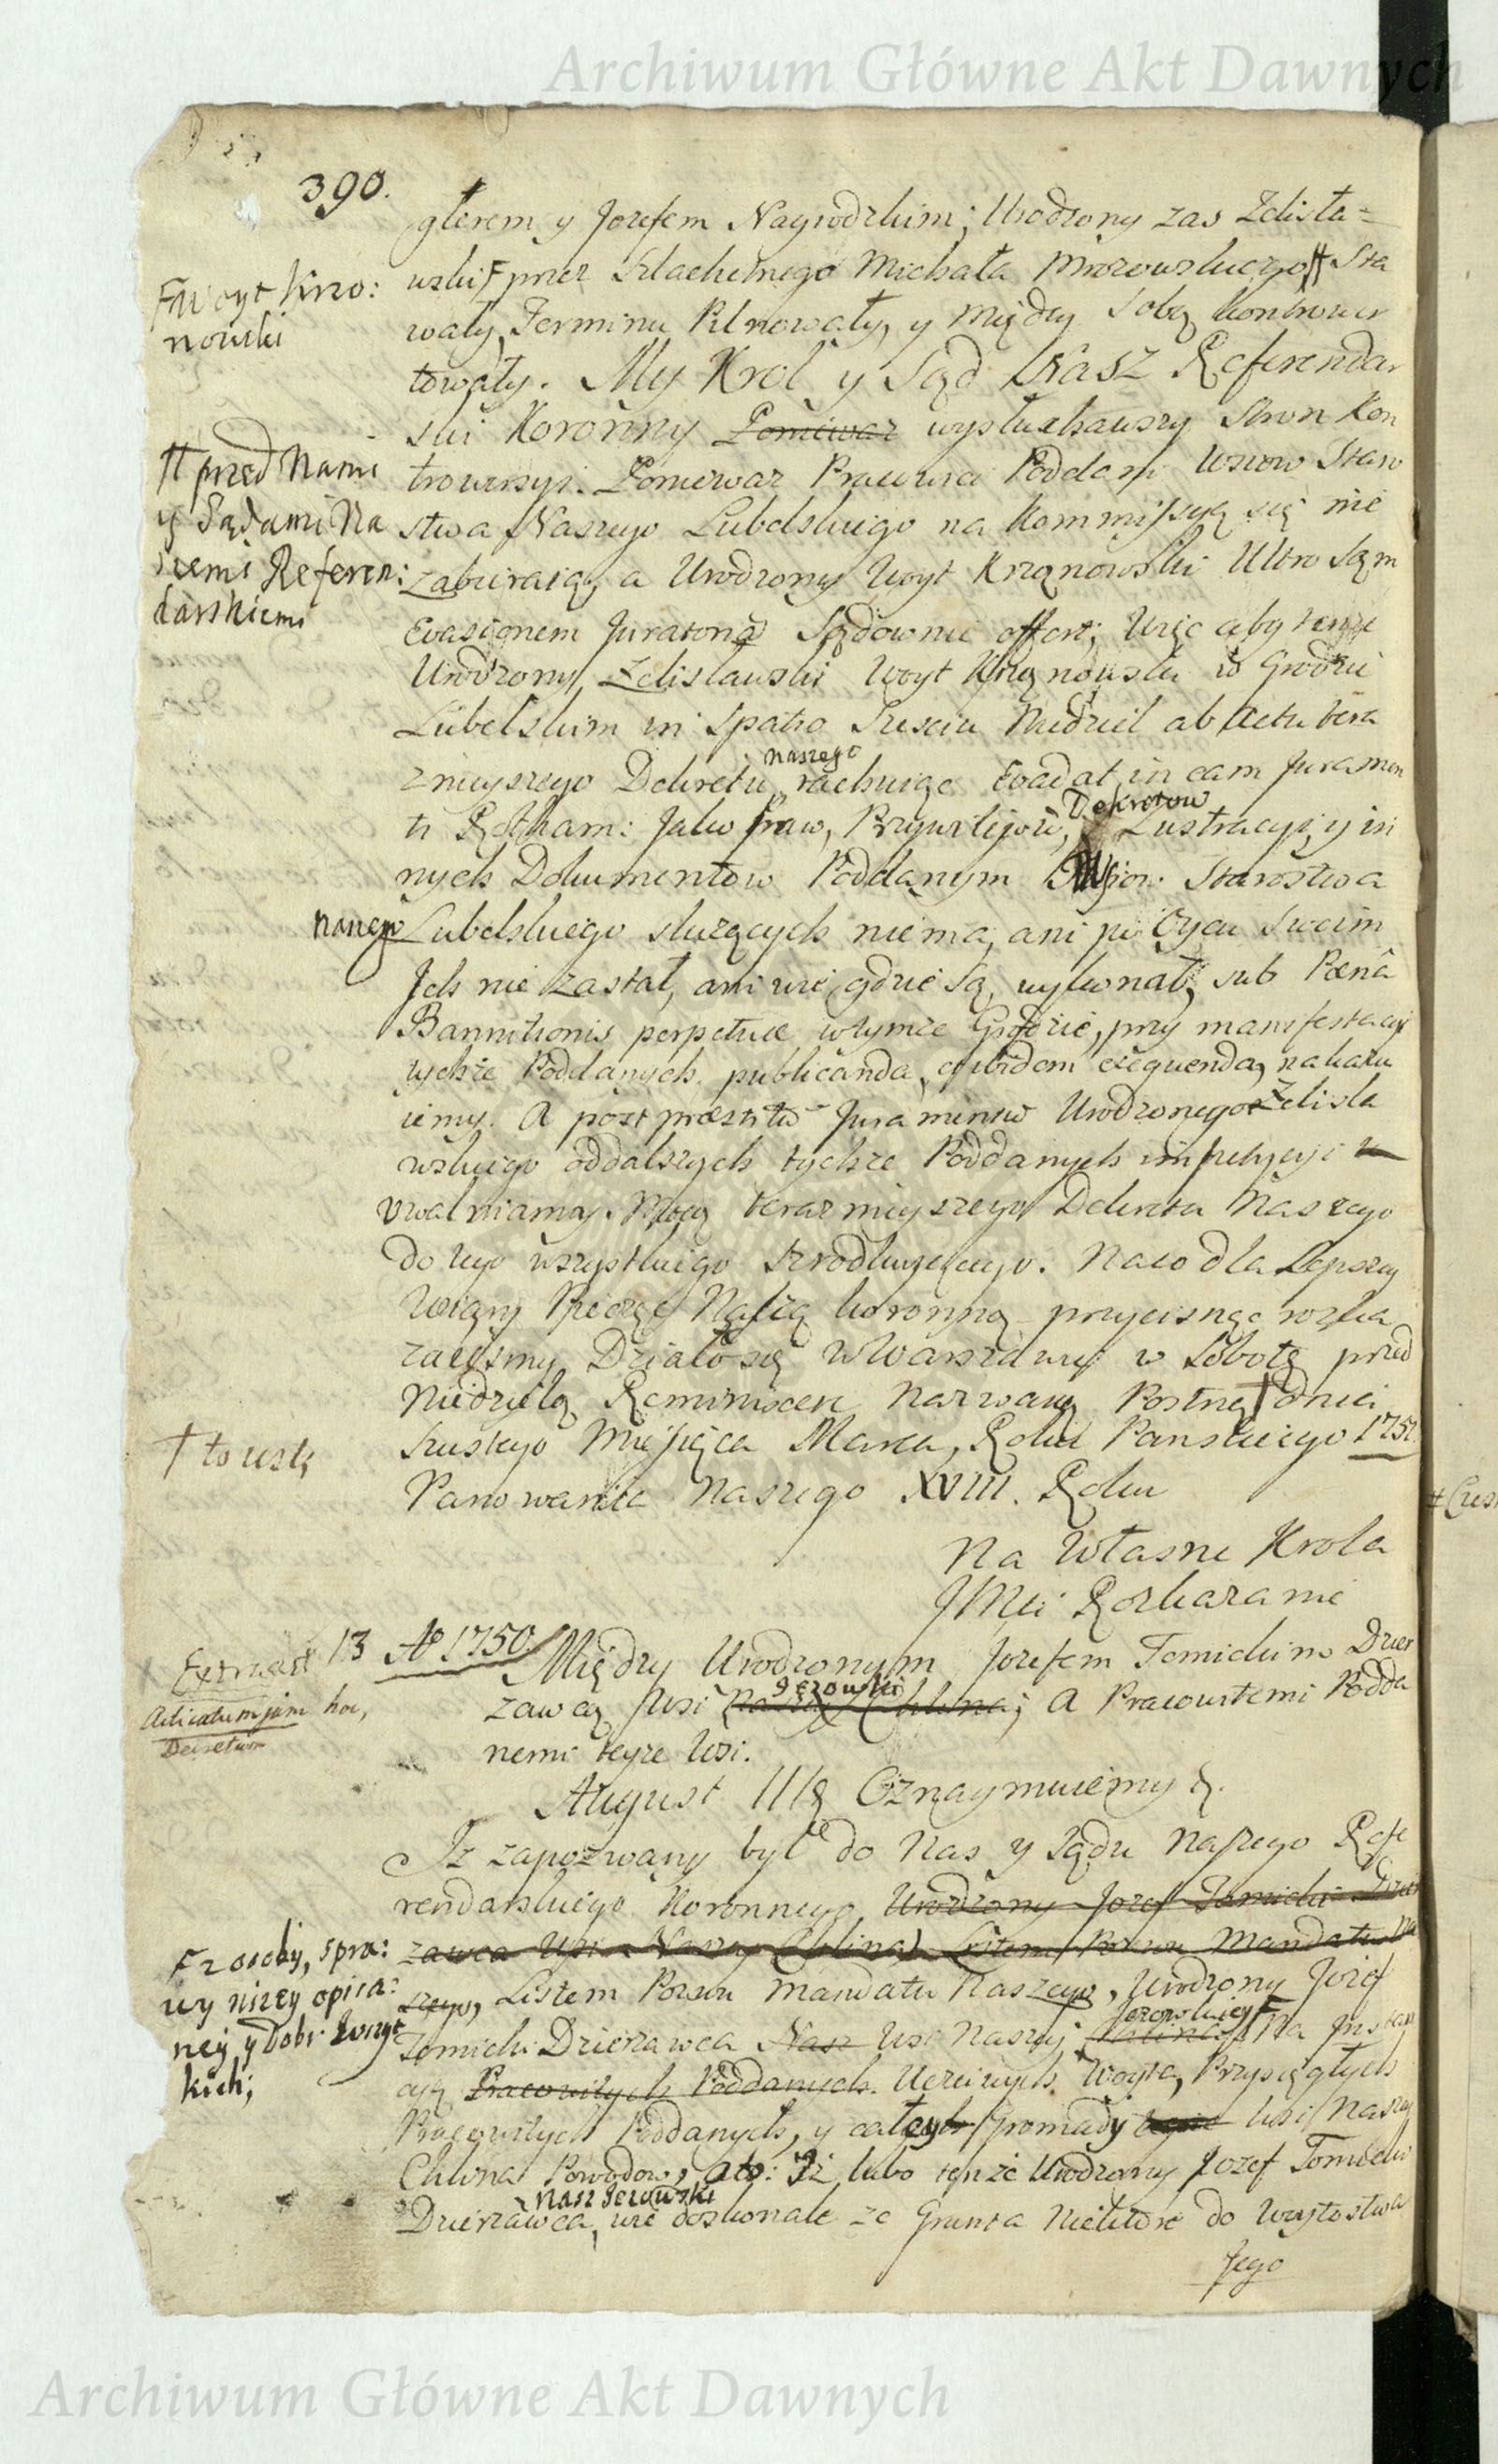 Archiwum Główne Akt Dawnych
390.
glerem y Jozefem Nagrodzkim; Urodzony zas Zelisła=
wski F przez Szlachetnego Michała Mrozowskiego # Sta
F Woyt Krzo:
nowski
wały, Terminu Pilnowały, y między Sobą kontrower
towały. My Krol y Sąd Nasz Referendar
ski Koronny Poniewaz wysłuchawszy Stron Kon
# przed Nami
y Sądami Na
szemi Referen:
darskiemi
trowersyi. Poniewaz Pracowici Poddani Wsiow Staro
stwa Naszego Lubelskiego na Kommissyą się nie
zabieraią, a Urodzony Woyt Krząnowski Ultro Sąm
Evasionem Juratoriã Sądownie offert; Więc aby tenże
Urodzony Zelisławski Woyt Krząnowski w Grodzie
Lubelskim in Spatio Szesciu Niedziel ab Actu tera
znieyszego Dekretu naszego rachuiąc Evadat in eam Juramen
ti Rotham: Jako Praw, Przywileiow, Dekretow Lustracyi, y in
nych Dokumentow Poddanym Wsiow Starostwa
naszego Lubelskiego słuzących niema, ani po Oycu Swoim
Jch nie zastał, ani wie gdzie są, wykonał, sub Pœnâ
Bannitionis perpetuæ wtymże Grodzie, przy manifestacyi
tychże Poddanych publicanda, et ibidem exequenda, nakazu
iemy. A post præstitũ Juramentũ Urodzonego Zelisła
wskiego od dalszych tychze Poddanych impetycyi u
uwalniamy. Mocą terazmieyszego Dekretu Naszego
do tego wszystkiego Srzodkuiącego. Naco dla Lepszey
Wiary Pieczęć Naszą koronną przycisnąc rozka
zalismy. Działo się w Warszawie w Sobotę przed
Niedzielą Reminiscere Nazwaną Postną † dnia
† to iest;
Szustego Miesiąca Marca, Roku Panskiego 1751.
Panowania Naszego XVIII. Roku
Na Własne Krola
JMci Rozkazanie
Extract 13 Aº 1750.
Adicatum jam hoc,
Decretum
Między Urodzonym Jozefem Tomickim Dzier
zawcą Wsi Jezowski; A Pracowitemi Podda
nemi teyze Wsi.
August IIIg Oznaymuiemy &.
Jż zapozwany był do Nas y Sądu Naszego Refe
rendarskiego Koronnego Urodzony Jozef Tomicki Dzier
zawca Wsi Naszey Chlina Listem Pozwu Mandatu Na
F z osoby, spra:
wy nizey opisa:
ney y Dobr Wszyst
kich;
szego, Listem Pozwu Mandatu Naszego, Urodzony Jozef
Tomicki Dzierzawca Nasz Wsi Naszey Jezowskiey F Na Jnstan
cyą Pracowitych Poddanych. Uczciwych Woyta, Przysięgłych
Pracowitych Poddanych, y całey Gromady Wsi Naszey
Chlina Powodow, Oto: Jż lubo tenże Urodzony Jozef Tomicki
Dzierzawca Nasz Jezowski, wie doskonale ze Grunta Niektore do Woytostwa
Jego
Archiwum Główne Akt Dawnych